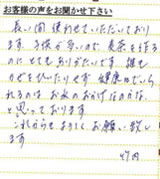 お客様の声をお聞かせ下さい
長い間使わせていただいており
ます。子供が多いので、麦茶を作る
のにとてもありがたいです。誰も
かぜをひいたりせず健康でいら
れるのはお水のおかげなのかな、
と思っております。
これからもよろしくお願い致し
ます。
竹内